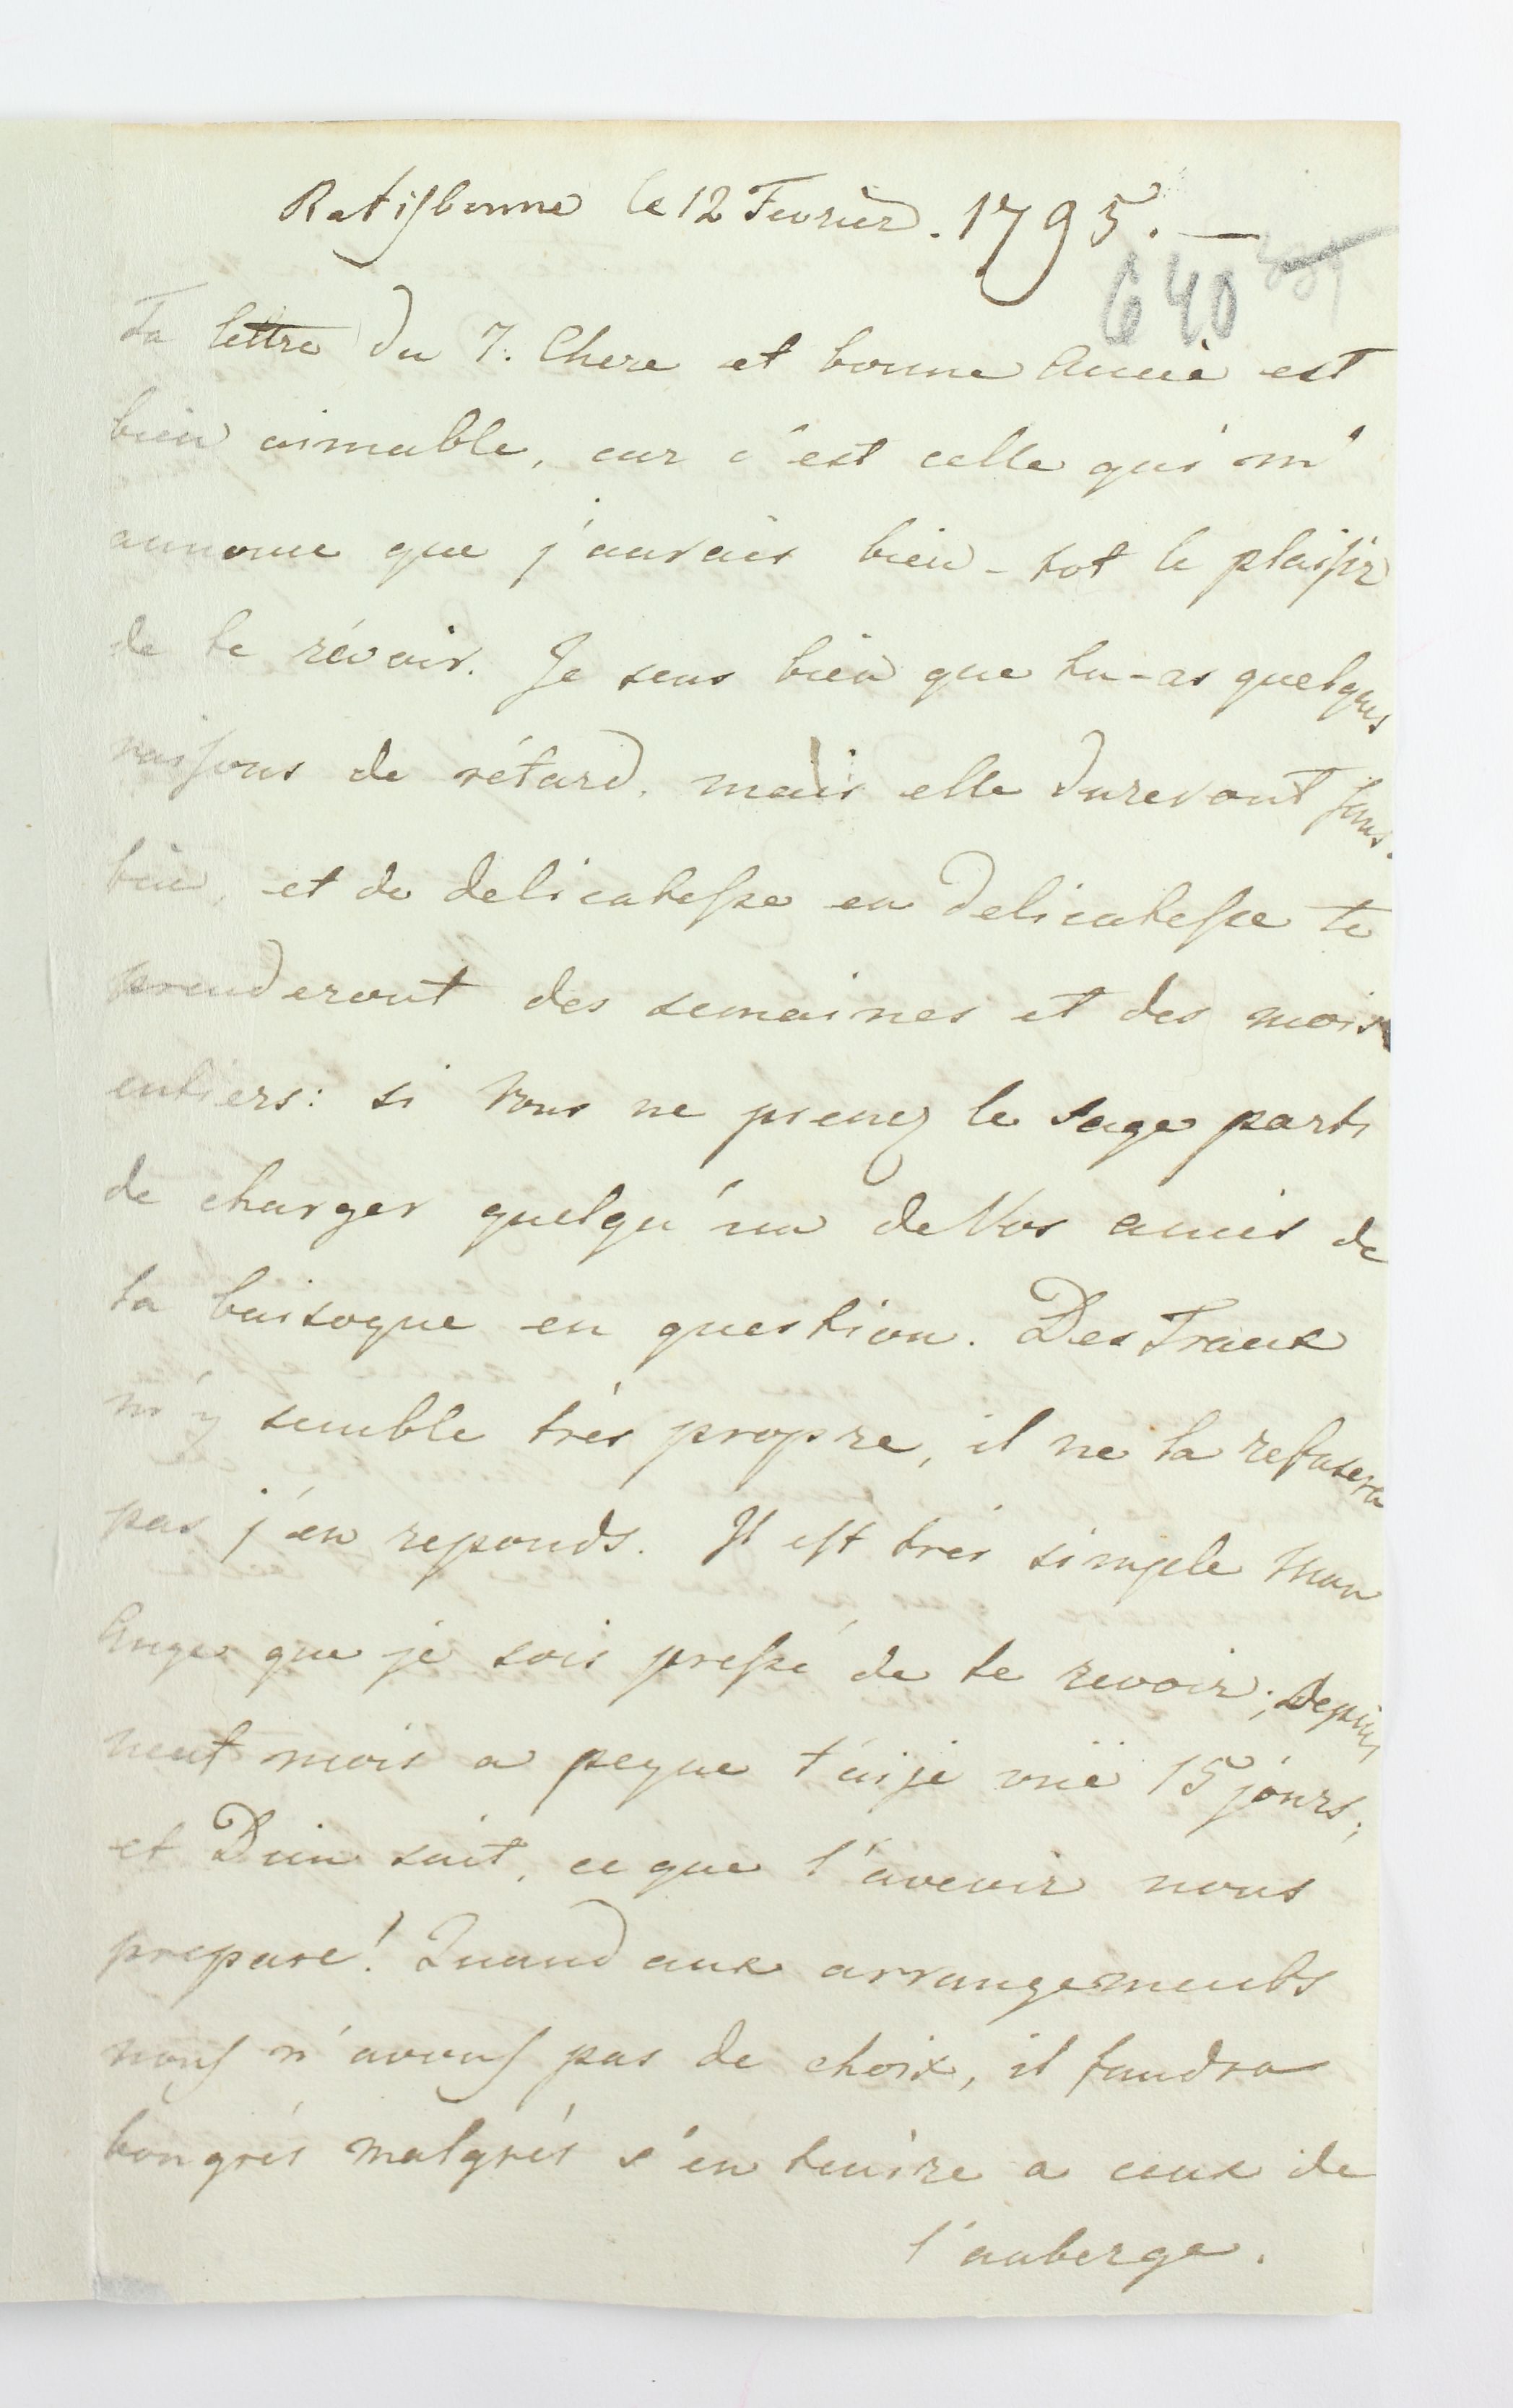 Ratisbonne le 12 Fevrièr. 1795. —
640
Ta lettre du 7. Chere et bonne Amiè est
bien aimable, car c'est celle qui m'
annonce que j'aurais bien-tot le plaisir
de te révoir. Je sens bien que tu-as quelques
raisons de rétard, mais elle dureront fous.
bie, et de delicatesse en delicatesse te
prenderont des semaines et des mois
entiers: si Vous ne prenez le sage parti
de charger quelqu'un de Vos amis de
la baisogne en question. Des Traux
m'y semble très propre, il ne la refusera
pas j'en reponds. Il est très simple Mon
Ange que je sois pressé de te revoir; Depuis
neuf mois a peyne t'aije vuë 15 jours;
et Dieu sait, ce que l'avenir nous
prepare! Quand aux arrangements
nous n'avons pas de choix, il faudra
bongrés malgrés s'en tenire a ceux de
l'auberge.